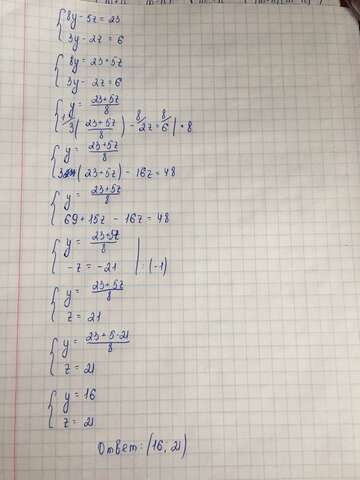 8y - 5z = 23
3y - 2z = 6
8y = 23 + 5z
3y - 2z = 6
y = 23+5z/8
3(23+5z/8) - 2z = 6 | • 8
y = 23+5z/8
3(23+5z) - 16z = 48
y = 23+5z/8
69 + 15z - 16z = 48
y = 23+5z/8
-z = -21 | : (-1)
y = 23+5z/8
z = 21
y = 23+5·21/8
z = 21
y = 16
z = 21
Ответ: (16, 21)